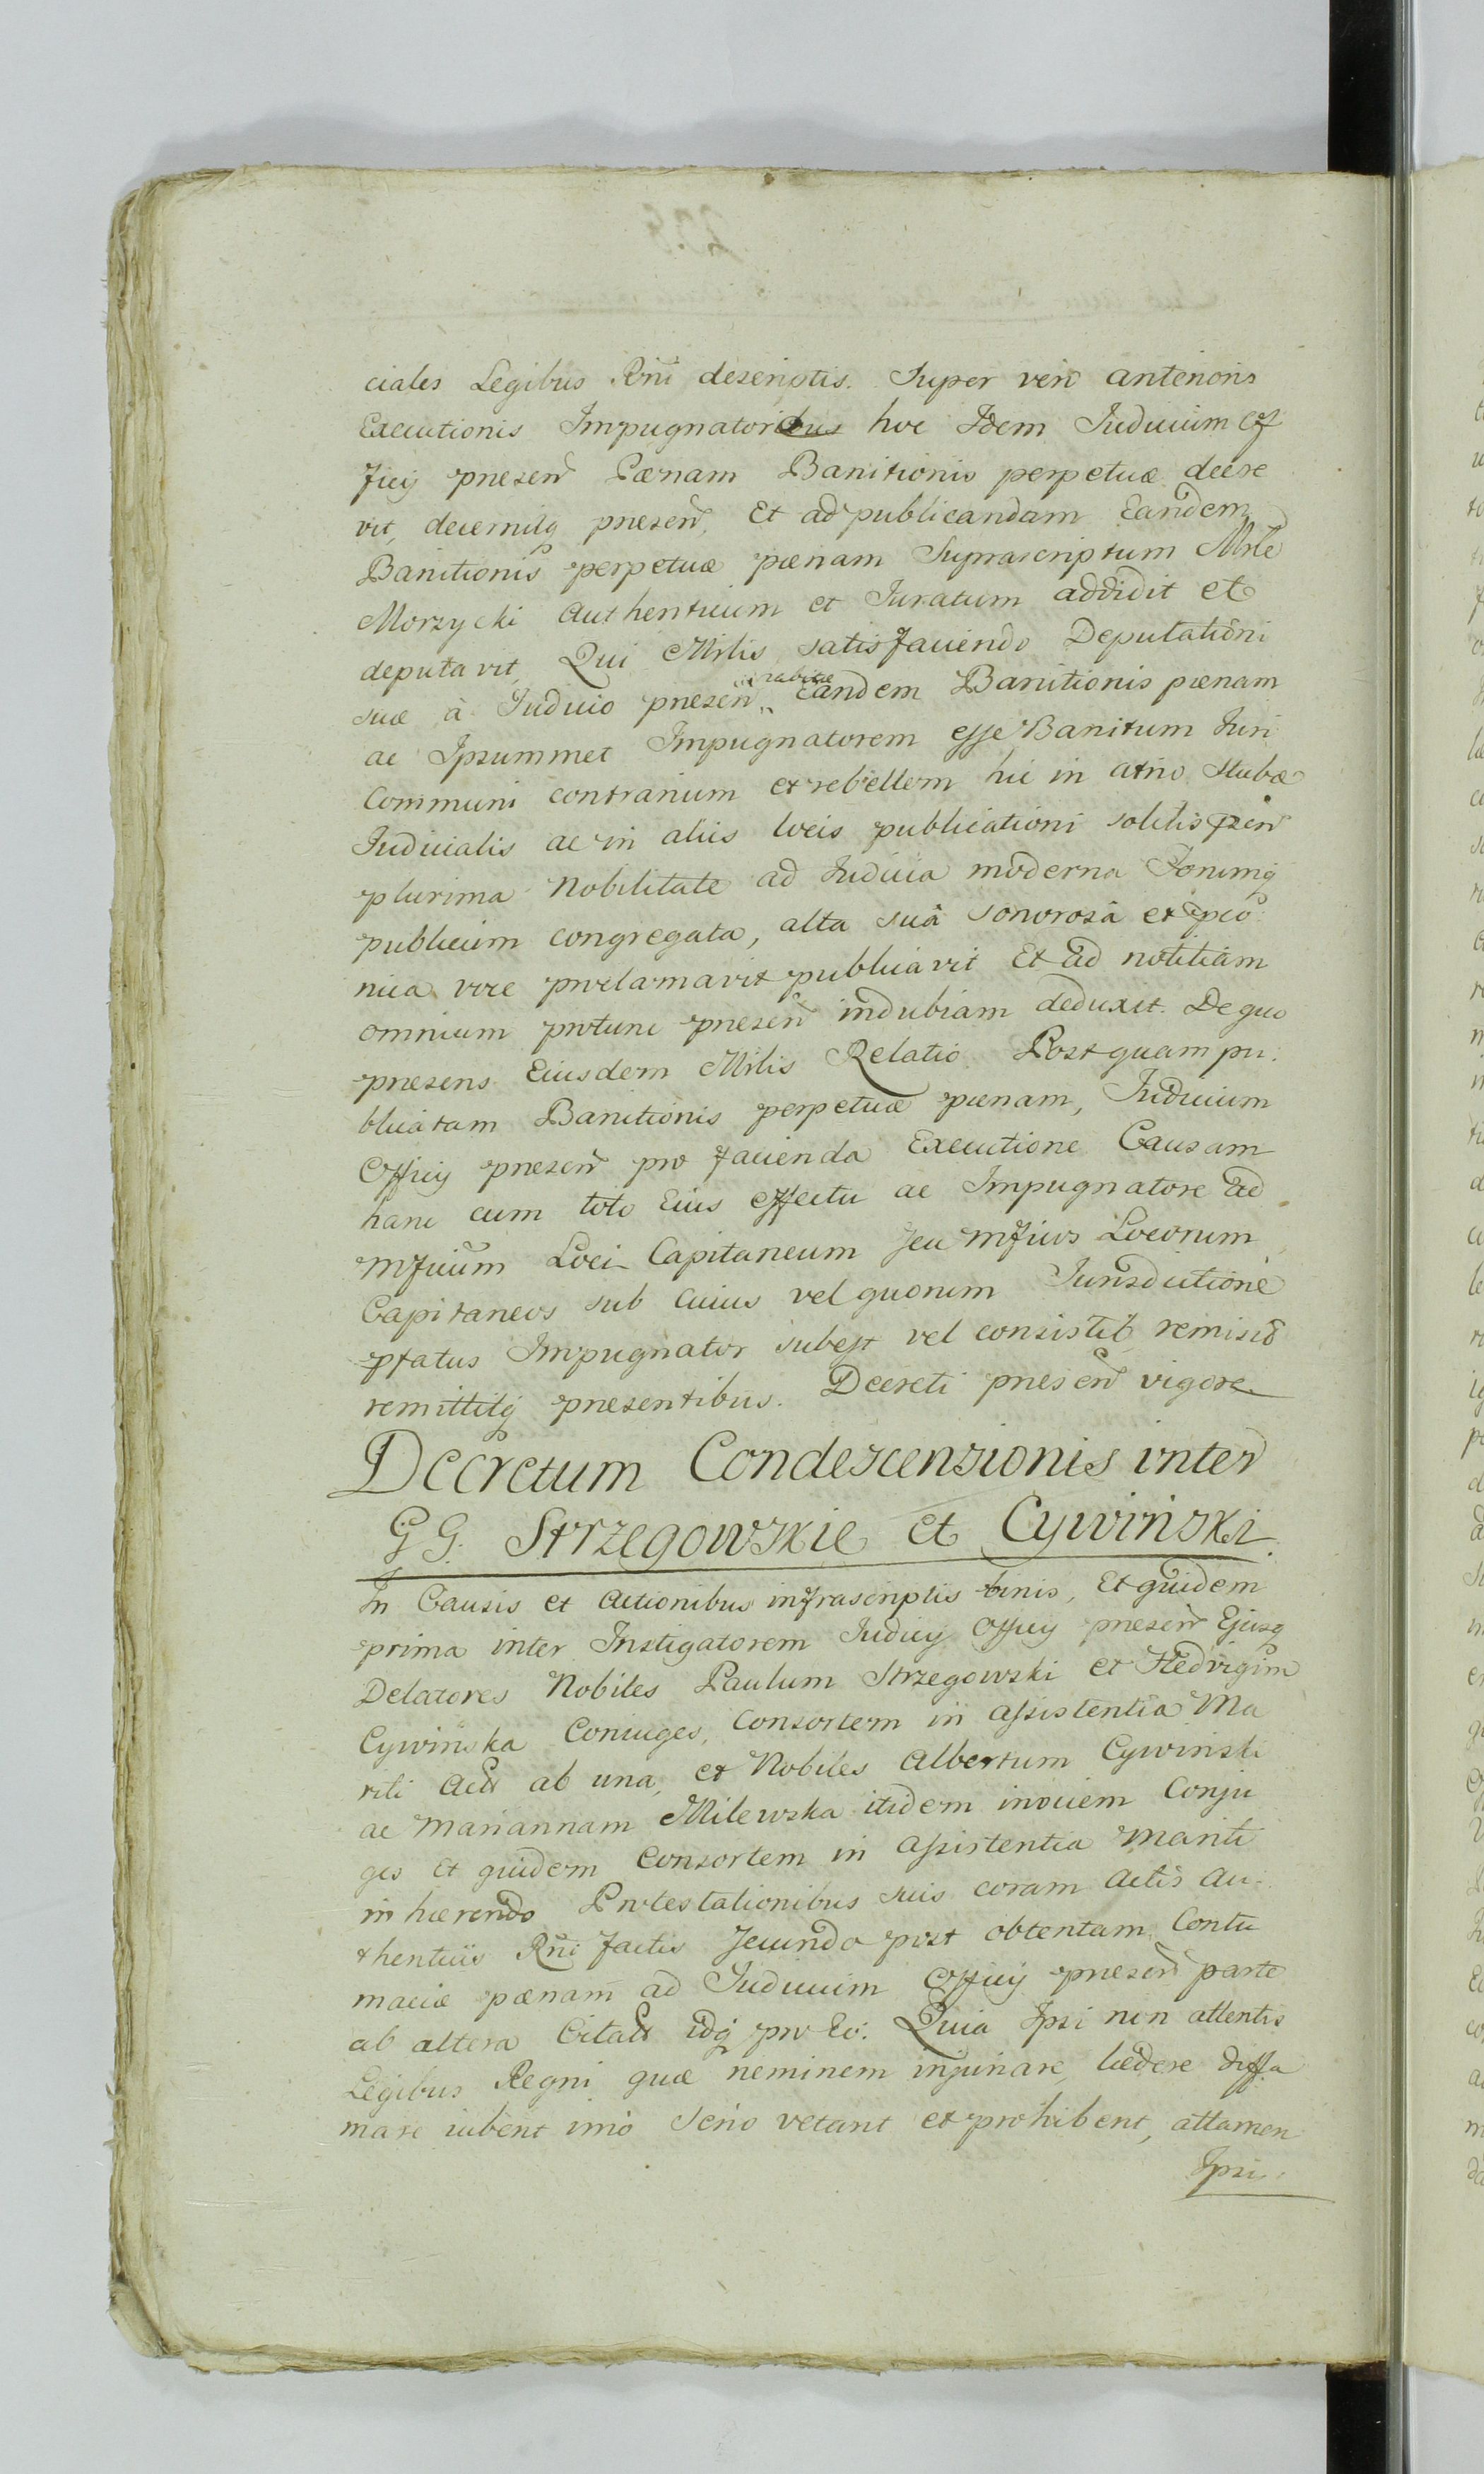 ciales Legibus Rni descriptis. Super verò anterioris
Executionis Impugnatoribus hoc Idem Judicium Of
ficij præsen Pænam Banitionis perpetuæ decre
vit, decernitq præsen, Et ad publicandam Eandem
Banitionis perpetuæ pænam Suprascriptum Mrle
Morzycki Authenticum et Juratum addidit et
deputavit, Qui Mrlis satisfaciendo Deputationi
suæ à Judicio præsen Eandem Banitionis pænam
ac Ipsummet Impugnatorem esse Banitum Juri
Communi contrarium et rebellem hic in atrio Stubæ
Judicialis ac in aliis locis publicationi solitis præn
plurima Nobilitate ad Judicia moderna Forumq
publicum congregata, alta suâ sonorosâ et præco
nica voce proclamavit publicavit Et ad notitiam
omnium protunc præsen indubiam deduxit. De quo
præsens Eiusdem Mrlis Relatio. Postquam pu
blicatam Banitionis perpetuæ pænam, Judicium
Officij præsen pro facienda Executione Causam
hanc cum toto Eius effectu ac Impugnatore ad
Mficum Loci Capitaneum seu Mficos Locorum
Capitaneos sub cuius vel quorum Jurisdictione
pfatus Impugnator subest vel consistit, remisit
remittitq præsentibus. Decreti præsen vigore
Decretum Condescensionis inter
GG. Strzegowskie et Cywiński.
In Causis et Actionibus infrascriptis binis, Et quidem
prima inter Instigatorem Judicij Officij præsen Ejusq
Delatores Nobiles Paulum Strzegowski et Hedvigim
Cywińska Coniuges, Consortem in assistentia Ma
riti Act ab una, et Nobiles Albertum Cywinski
ac Mariannam Milewska itidem invicem Conju
ges et quidem Consortem in Assistentia Mariti
inhærendo Protestationibus suis coram Actis Au-
thenticis Rni factis Secundo post obtentam Contu
maciæ pænam ad Judicium Officij præsen parte
ab altera Citat idq pro Eo: Quia Ipsi non attentis
Legibus Regni quæ neminem injuriare, lædere diffa
mare iubent imò Serio vetant et prohibent, attamen
Ipsi